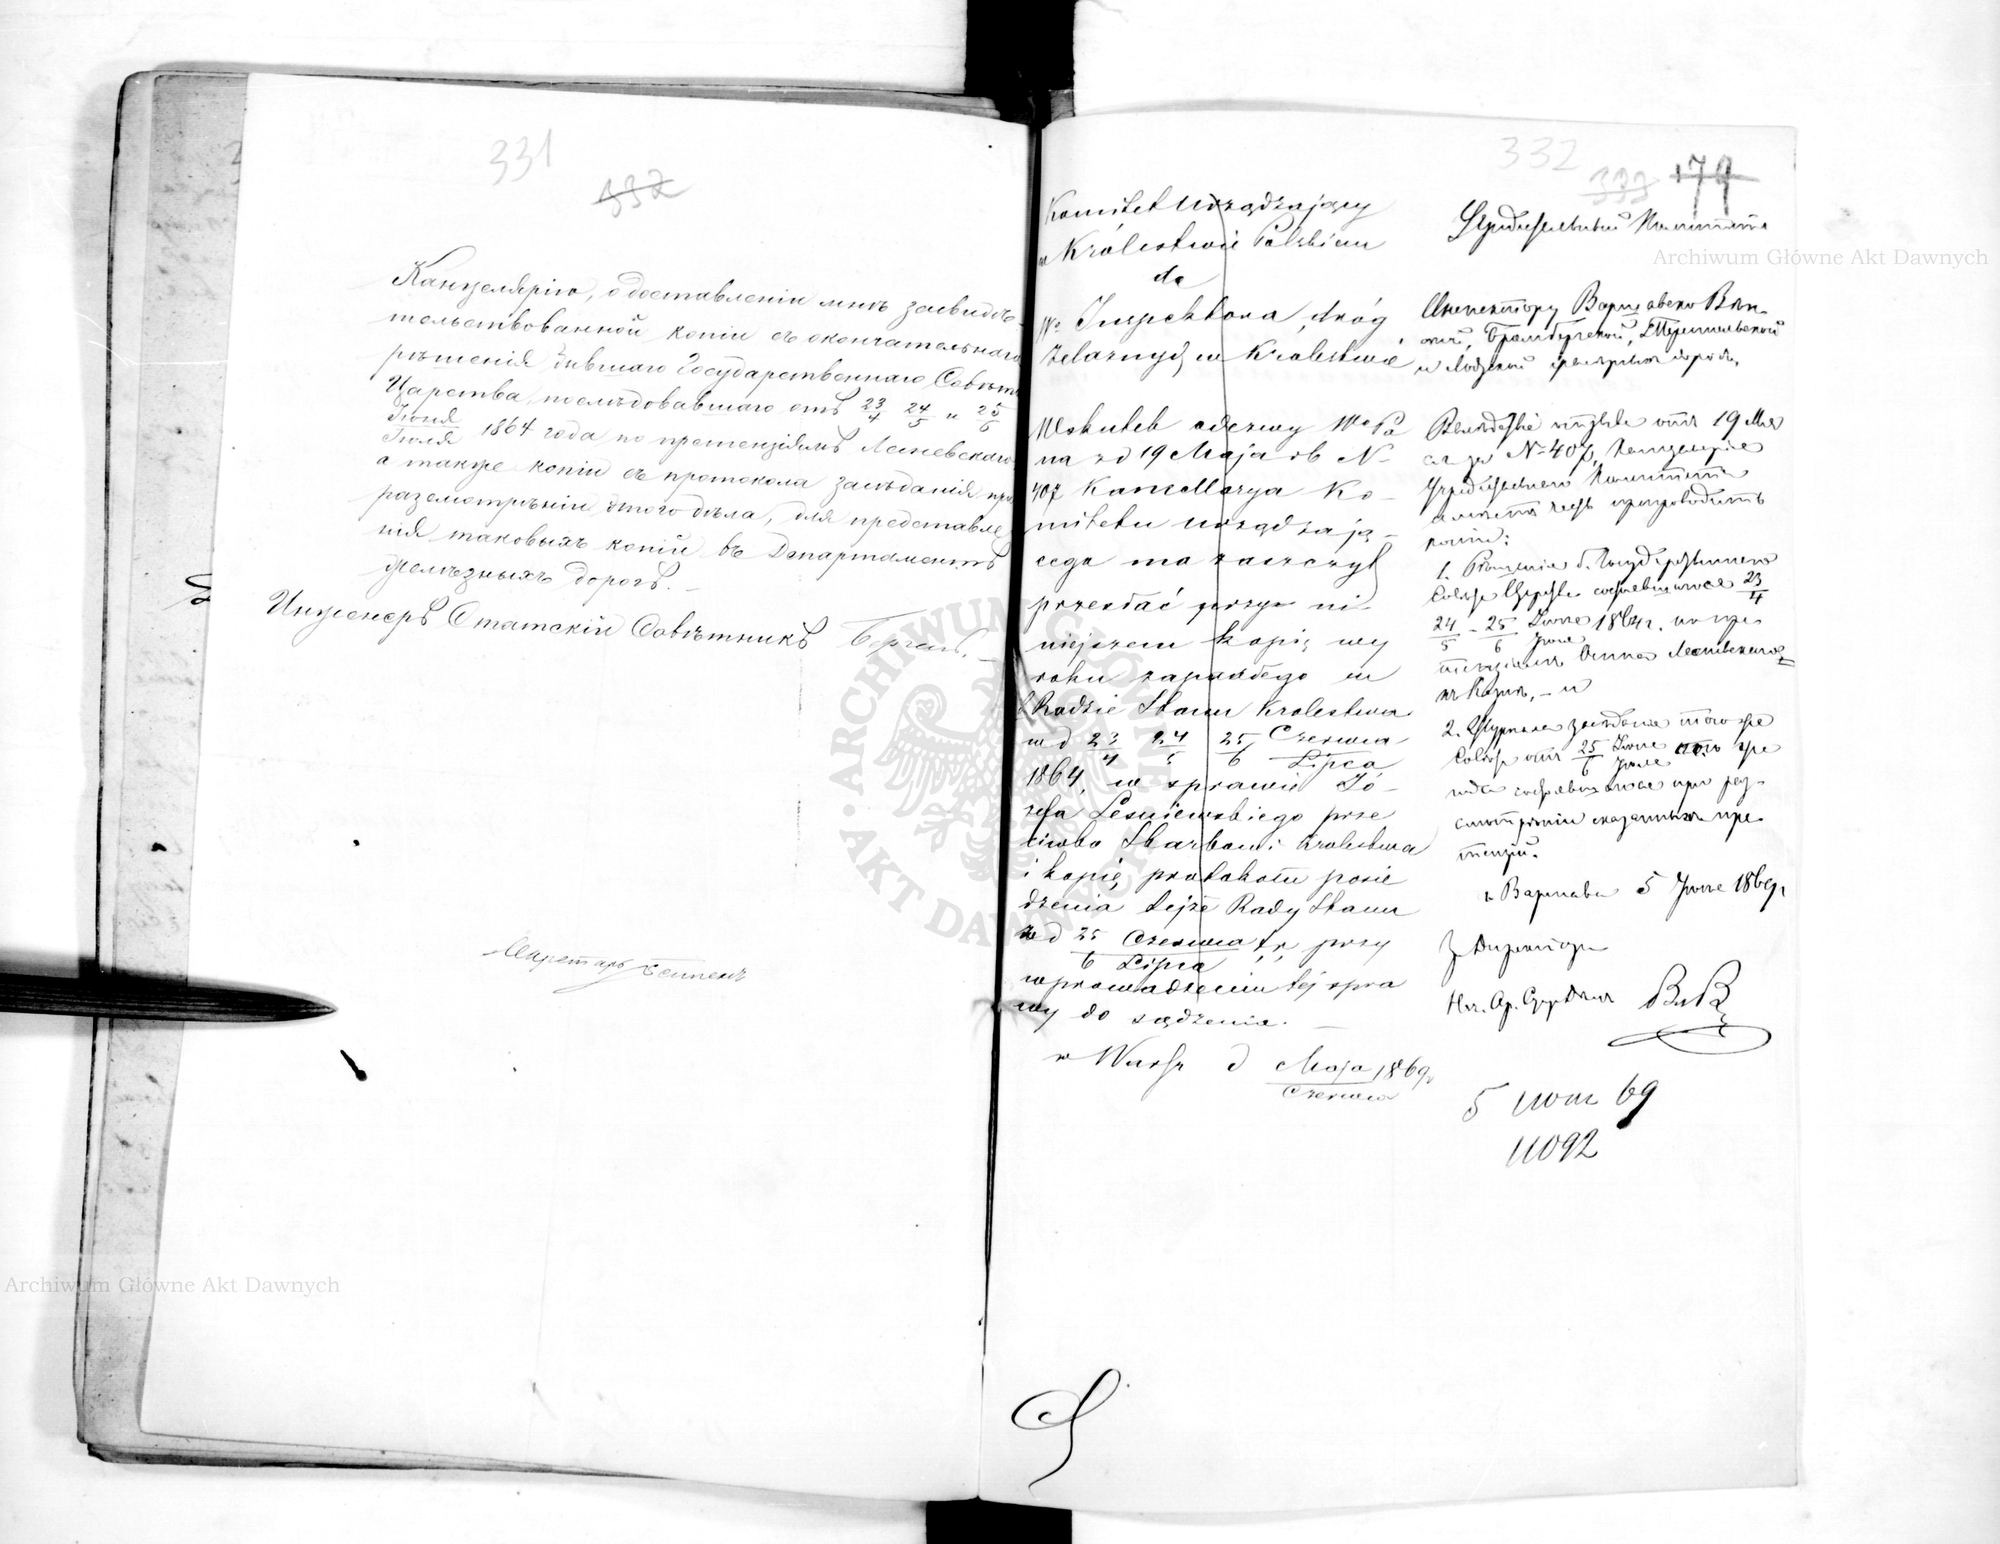 331
332
Канцелярію, о доставленіи мнѣ засвидѣ-
тельствованной копіи съ окончательнаго
рѣшенія бывшаго Государственнаго Совѣта
Царства, послѣдовавшаго отъ 23/4 24/5 и 25/6
Іюня/Іюля 1864 года по претензіямъ Лесневскаго,
а также копіи съ протокола засѣданія при
разсмотрѣніи этого дѣла, для представле
нія таковыхъ копій въ Департаментъ
желѣзныхъ дорогъ. —
Инженеръ Статскій Совѣтникъ
Секретарь
332
333 179
Komitet Urządzający
w Królestwie Polskiem
do
Wo Inspektora dróg
żelaznych w Krolestwie
Wskutek odezwy Wo Pa
na z d 19 Maja rb N-
407 Kancellarya Ko-
mitetu urządzają-
cego ma zaszczyt
przesłać przy ni-
niejszem kopię wy
roku zapadłego w
b Radzie Stanu Krolestwa
w d 23/4 24/5 25/6 Czerwca/Lipca
1864, w sprawie Jó-
zefa Lesniewskiego prze
ciwko Skarbowi Krolestwa
i kopię protokołu posie
dzenia tejże Rady Stanu
z d 25/6 Czerwca/Lipca t.r. przy
wprowadzeniu tej spra
wy do sądzenia. —
w Warsz d Maja/Czerwca 1869r
Учредительный Комитетъ
Инспектору Варшавско Вѣн-
ской, Бромбергской, Тереспольской
и Лодзской желѣзныхъ дорогъ.
Вслѣдствіе отзыва отъ 19 Мая
за № 407, Канцелярія
Учредительнаго Комитета
имѣетъ честь препроводить
копіи:
1. Рѣшенія б. Государственнаго
Совѣта Царства состоявшагося 23/4
24/5 - 25/6 Іюня/Іюля 1864 г. по пре-
тензіямъ Лесневскаго
къ Казнѣ, — и
2. Журнала засѣданія того же
Совѣта отъ 25/6 Іюня/Іюля того же
года состоявшагося при раз-
смотрѣніи сказанныхъ пре-
тензій.
г. Варшава 5 Іюня 1869 г
За Директора
5 Іюня 69
11092
Archiwum Główne Akt Dawnych
Archiwum Główne Akt Dawnych
ARCHIWUM GŁÓWNE AKT DAWNYCH